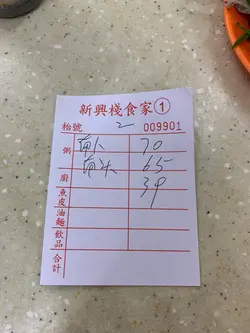 新興棧食家①
枱號 2 009901
粥 70
65
廚 39
魚皮
油麵
飲品
合計